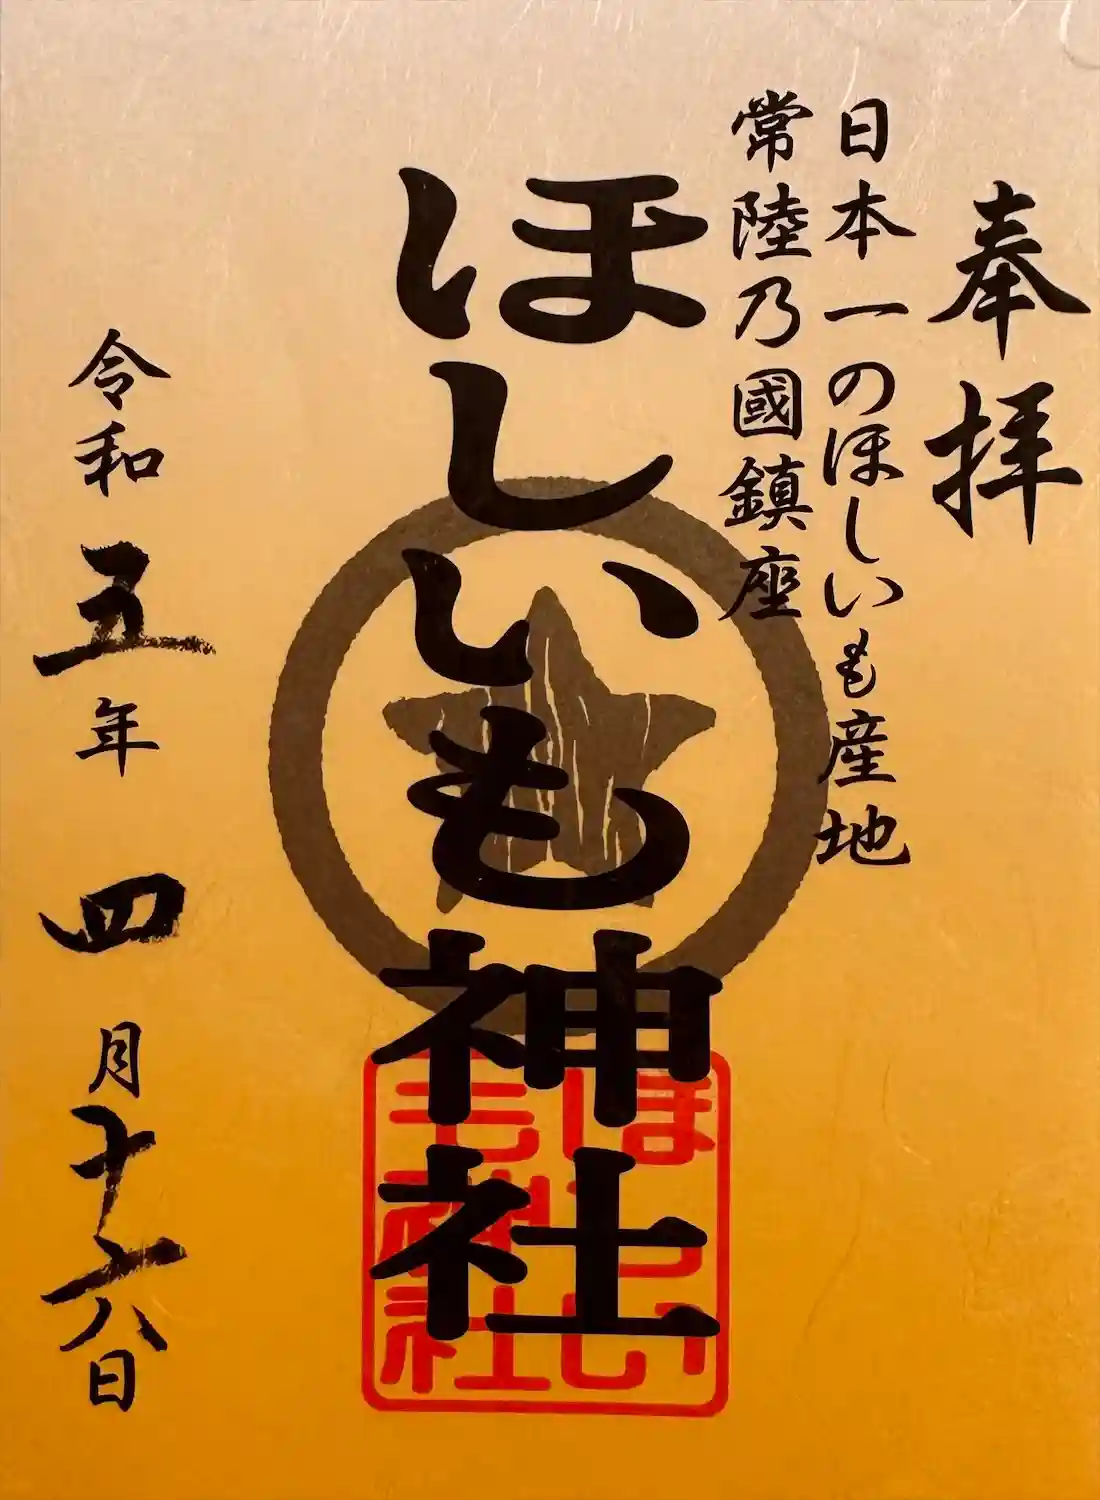 奉拝
日本一のほしいも産地
常陸乃國鎮座
ほしいも神社
令和五年四月十六日
ほしい
も神社